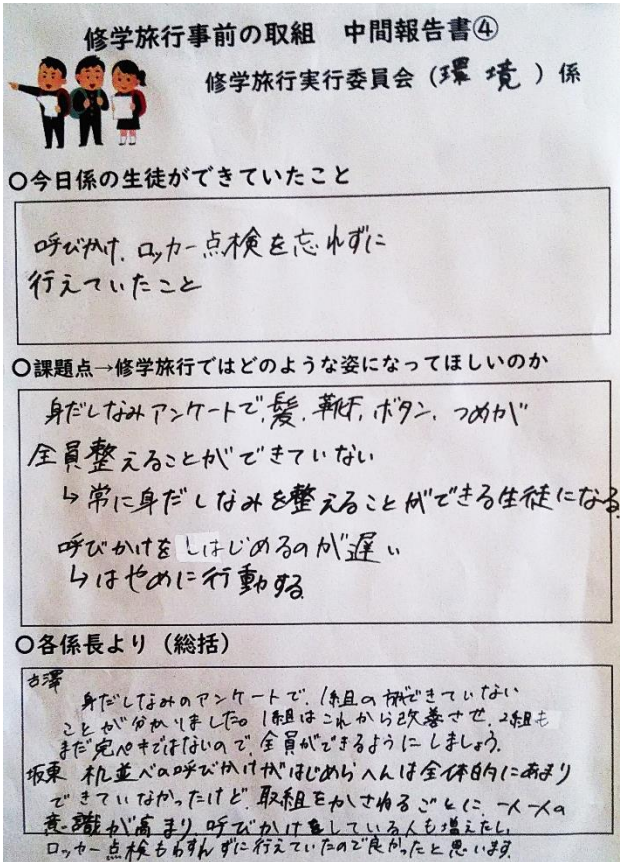 修学旅行事前の取組 中間報告書④
修学旅行実行委員会(環境)係
○今日係の生徒ができていたこと
呼びかけ、ロッカー点検を忘れずに
行えていたこと
○課題点→修学旅行ではどのような姿になってほしいのか
身だしなみアンケートで、髪、靴下、ボタン、つめが
全員整えることができていない
↳常に身だしなみを整えることができる生徒になる。
呼びかけをしはじめるのが遅い
↳はやめに行動する
○各係長より(総括)
古澤
身だしなみのアンケートで、1組の方ができていない
ことが分かりました。1組はこれから改善させ、2組も
まだ完ペキではないので、全員ができるようにしましょう。
坂東 机並べの呼びかけがはじめらへんは全体的にあまり
できていなかったけど、取組をかさねるごとに、一人一人の
意識が高まり、呼びかけをしている人も増えたし、
ロッカー点検もわすれずに行えていたので良かったと思います